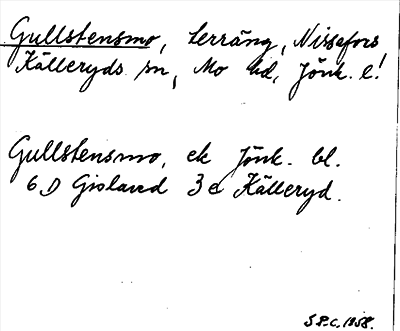 Gullstensmo, terräng, Nissafors
Källeryds sn, Mo hd, Jönk. l!
Gullstensmo, ek Jönk. bl.
6 D Gislaved 3 e Källeryd.
S P.C. 1958.